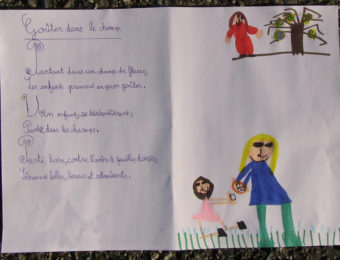 Goûter dans le champ
Partant dans un champ de fleurs,
Les enfants prennent un gros goûter.
Un enfant, se
Partit dans les champs.
Santé loin, contre l'arbre à feuilles dorées,
belles, basses et